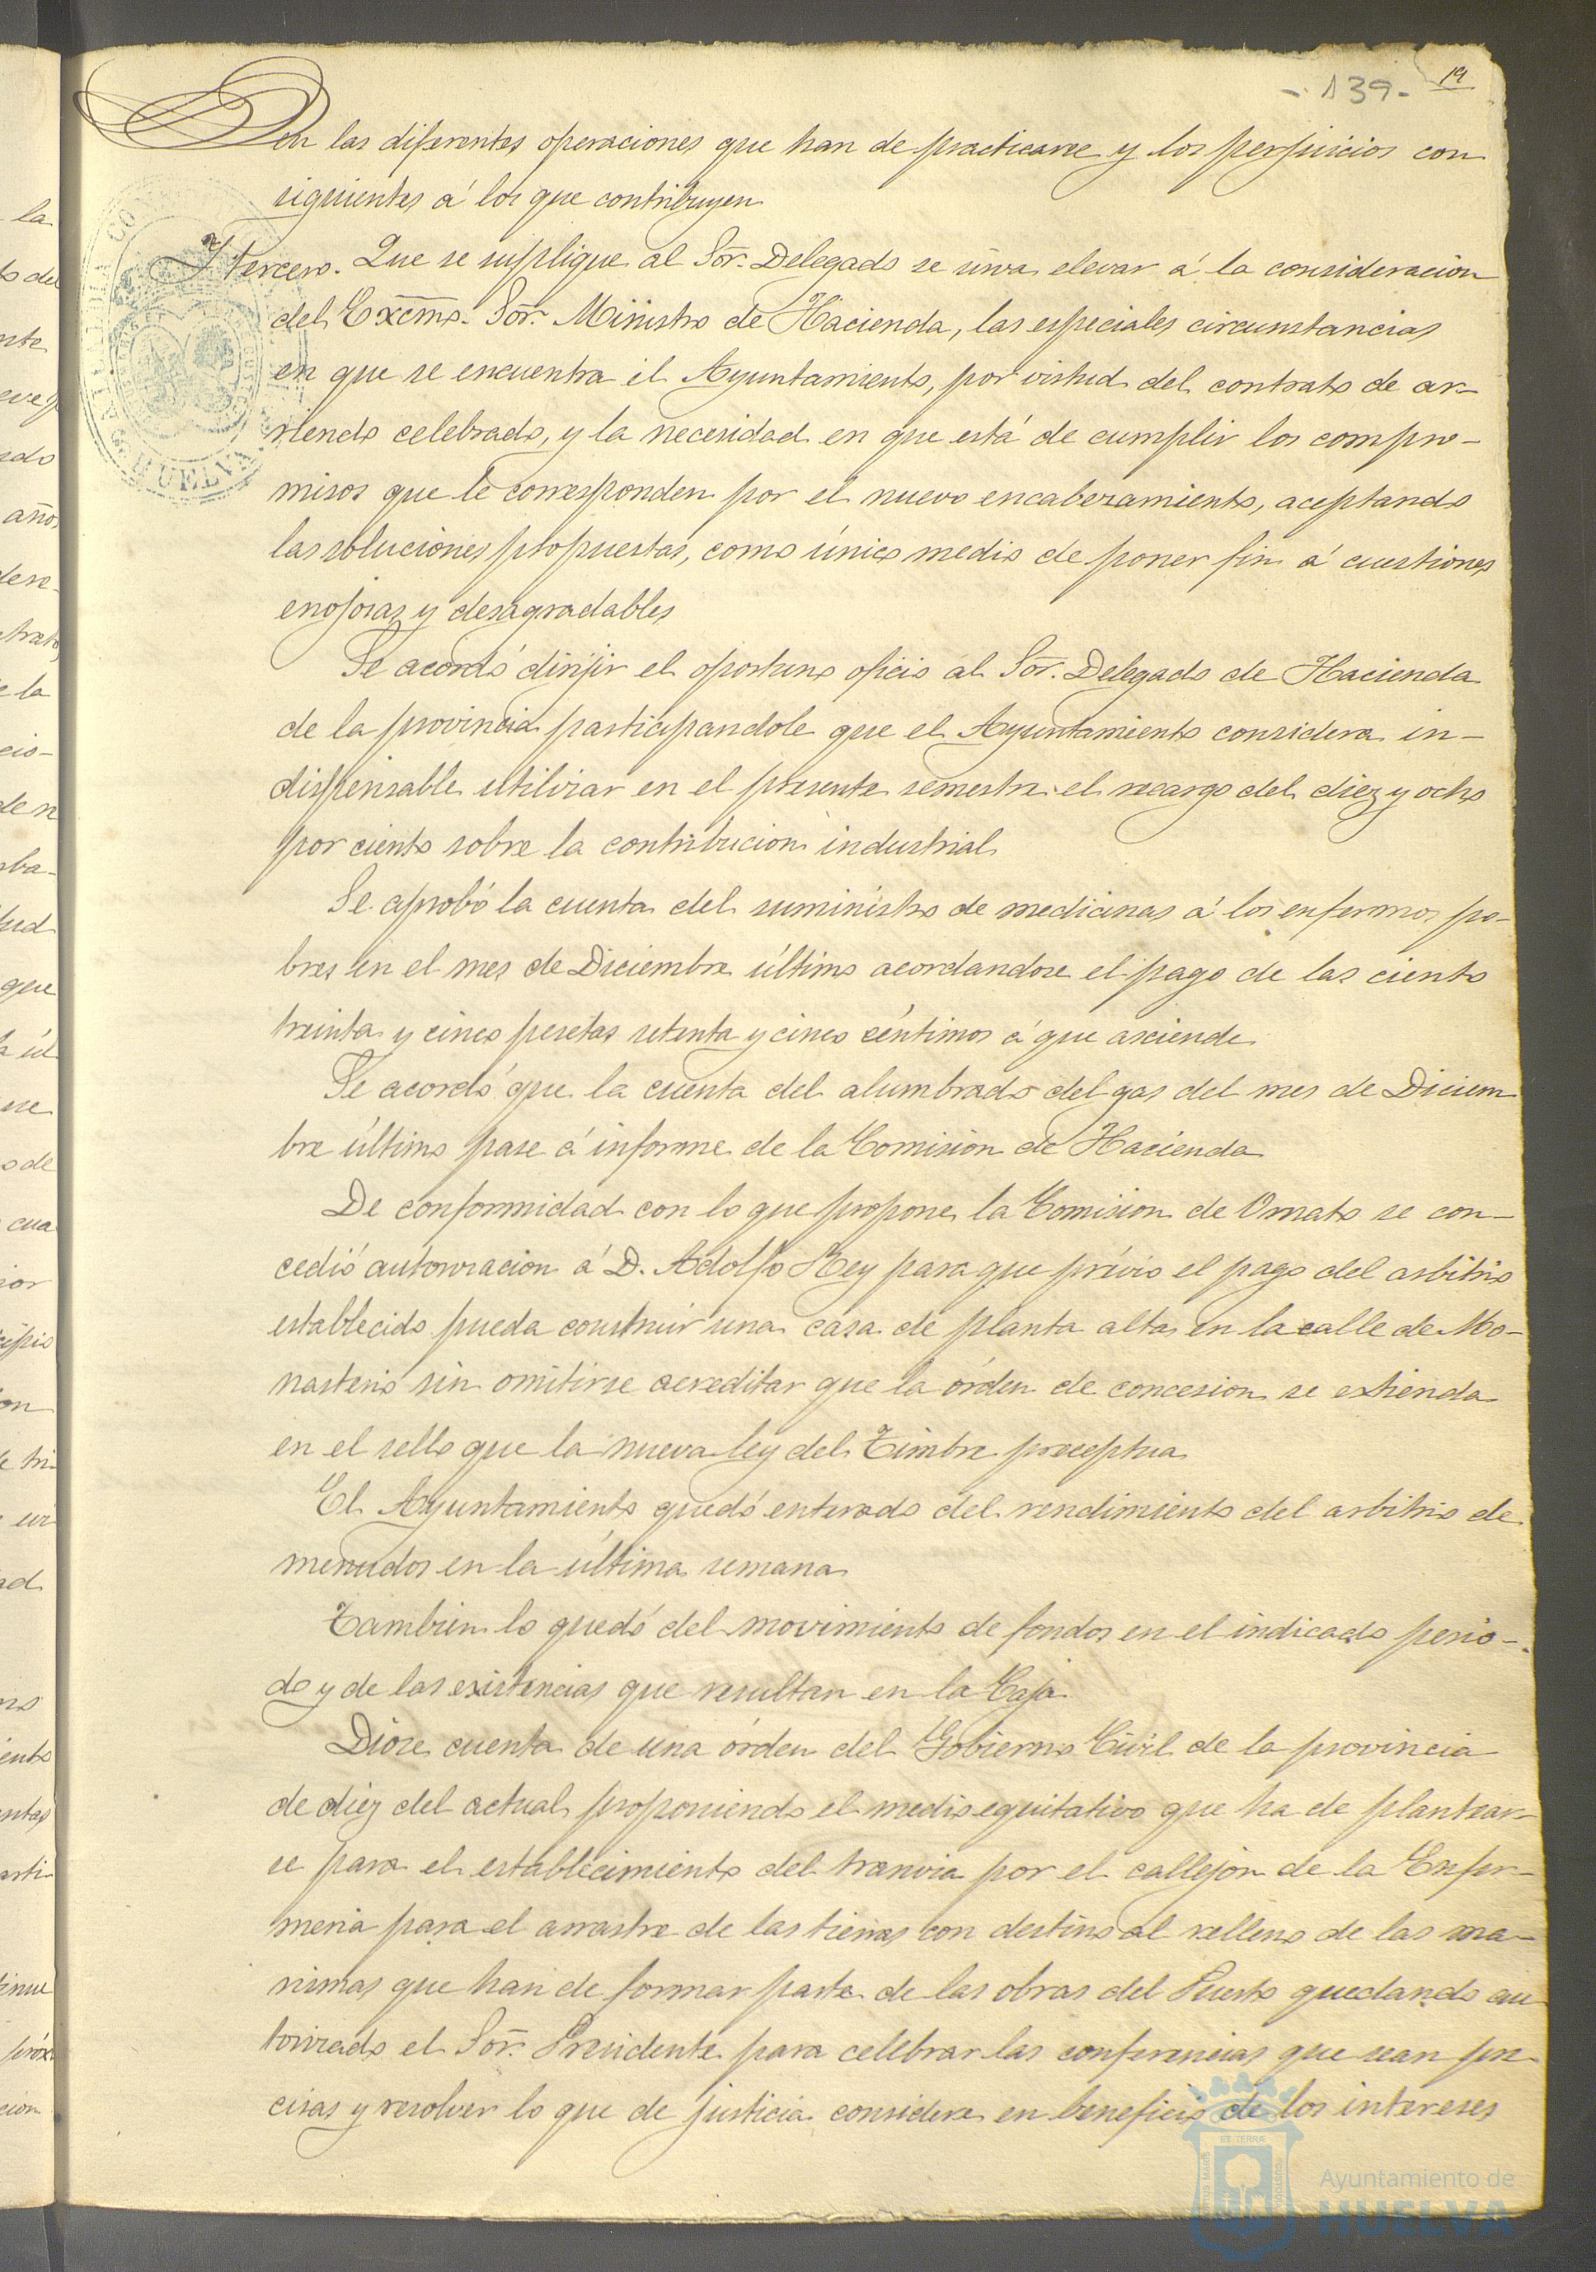 - 139 -
19
en las diferentes operaciones que han de practicarse y los perjuicios con
siguientes á los que contribuyen
Y tercero. Que se suplique al Sor. Delegado se sirva elevar á la consideracion
del Excmo. Sor. Ministro de Hacienda, las especiales circunstancias
en que se encuentra el Ayuntamiento, por virtud del contrato de ar-
riendo celebrado, y la necesidad en que está de cumplir los compro-
misos que le corresponden por el nuevo encabezamiento, aceptando
las soluciones propuestas, como único medio de poner fin á cuestiones
enojosas y desagradables
Se acordó dirijir el oportuno oficio al Sor. Delegado de Hacienda
de la provincia participandole que el Ayuntamiento considera in-
dispensable utilizar en el presente semestre el recargo del diez y ocho
por ciento sobre la contribucion industrial
Se aprobó la cuenta del suministro de medicinas á los enfermos po-
bres en el mes de Diciembre último acordandose el pago de las ciento
treinta y cinco pesetas setenta y cinco céntimos á que asciende
Se acordó que la cuenta del alumbrado del gas del mes de Diciem
bre último pase á informe de la Comision de Hacienda
De conformidad con lo que propone la Comision de Ornato se con-
cedió autorizacion á D. Adolfo Rey para que prévio el pago del arbitrio
establecido pueda construir una casa de planta alta en la calle de Mo-
nasterio sin omitirse acreditar que la órden de concesion se extienda
en el sello que la nueva ley del Timbre preceptua
El Ayuntamiento quedó enterado del rendimiento del arbitrio de
menudos en la última semana
Tambien lo quedó del movimiento de fondos en el indicado perio-
do y de las existencias que resultan en la Caja
Diose cuenta de una órden del Gobierno Civil de la provincia
de diez del actual proponiendo el medio equitativo que ha de plantear-
se para el establecimiento del tranvia por el callejon de la Enfer-
meria para el arrastre de las tierras con destino al relleno de las ma-
rismas que han de formar parte de las obras del Puerto quedando au
torizado el Sor. Presidente para celebrar las conferencias que sean pre
cisas y resolver lo que de justicia considere en beneficio de los intereses
HUELVA
Ayuntamiento de
HUELVA